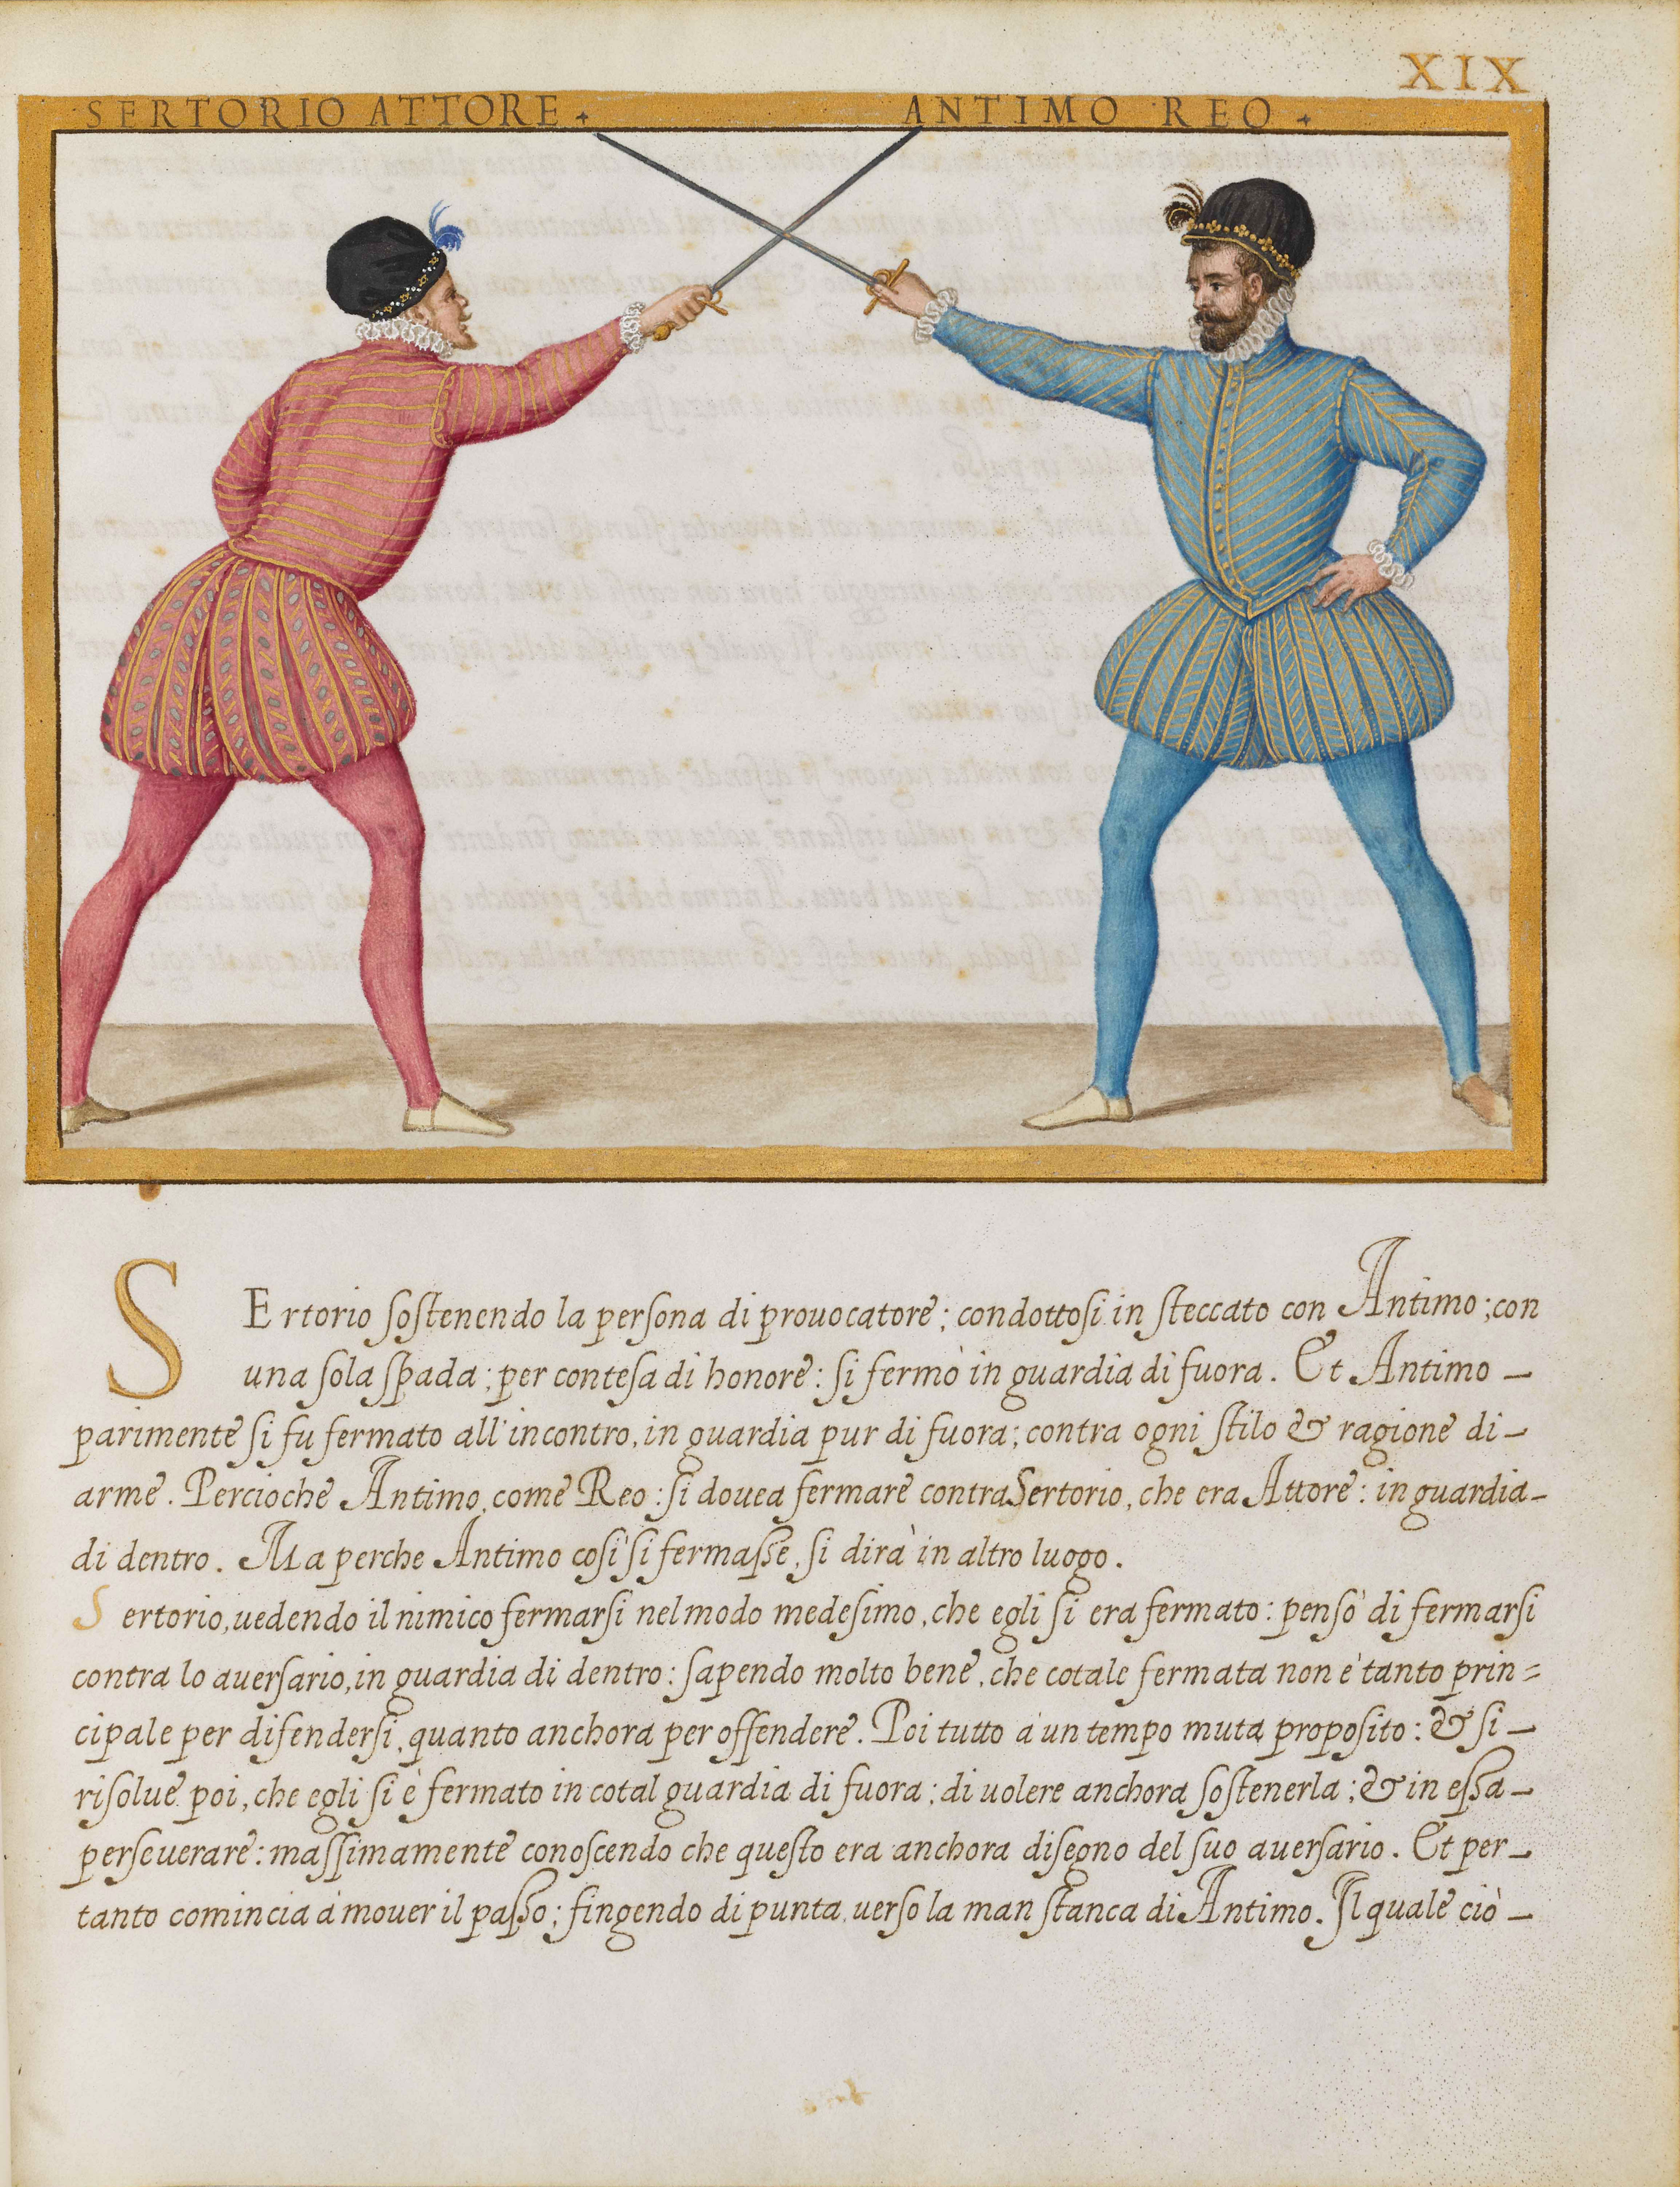 XIX
SERTORIO ATTORE +
ANTIMO REO +
SErtorio soſtenendo la perſona di prouocatore; condottoſi in ſteccato con Antimo; con
una ſola ſpada; per conteſa di honore: ſi fermò in guardia di fuora. Et Antimo –
parimente ſi fu fermato all'incontro, in guardia pur di fuora; contra ogni ſtilo & ragione di –
arme. Percioche Antimo, come Reo: ſi douea fermare contra Sertorio, che era Attore: in guardia –
di dentro. Ma perche Antimo coſi ſi fermaſſe, ſi dirà in altro luogo.
Sertorio, uedendo il nimico fermarſi nel modo medeſimo, che egli ſi era fermato: pensò di fermarſi
contra lo auerſario, in guardia di dentro: ſapendo molto bene, che cotale fermata non è tanto prin=
cipale per difenderſi, quanto anchora per offendere. Poi tutto à un tempo muta propoſito: & ſi –
riſolue poi, che egli ſi è fermato in cotal guardia di fuora; di uolere anchora ſoſtenerla; & in eſſa –
perſeuerare: maſſimamente conoſcendo che queſto era anchora diſegno del ſuo auerſario. Et per –
tanto comincia à mouer il paſſo; fingendo di punta, uerſo la man ſtanca di Antimo. Il quale ciò –